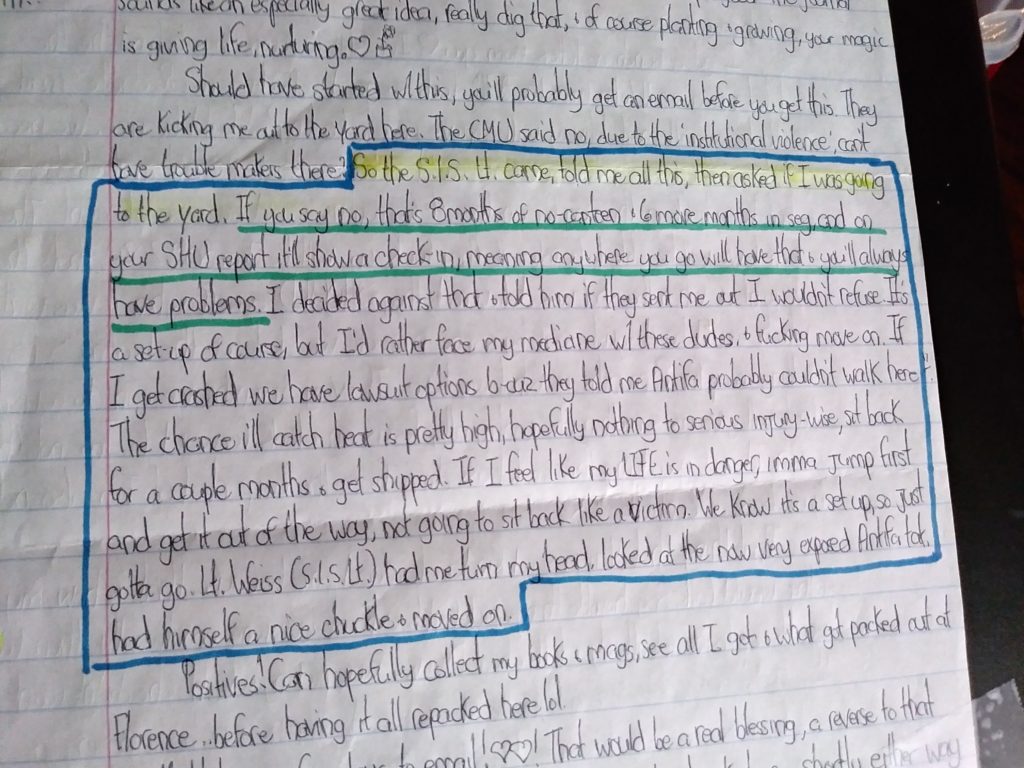 sounds like an especially great idea, really dig that, & of course planting & growing, your magic
is giving life, nurturing. ♡
Should have started w/this, you'll probably get an email before you get this. They
are kicking me out to the yard here. The CMU said no, due to the 'institutional violence', can't
have trouble makers there? So the S.I.S. Lt. came, told me all this, then asked if I was going
to the yard. If you say no, that's 8 months of no-canteen & 6 more months in seg, and on
your SHU report it'll show a check in, meaning anywhere you go will have that & you'll always
have problems. I decided against that & told him if they sent me out I wouldn't refuse. It's
a set-up of course, but I'd rather face my medicine w/ these dudes, & fucking move on. If
I get crashed we have lawsuit options b-cuz they told me Antifa probably couldn't walk here!
The chance ill catch heat is pretty high, hopefully nothing to serious injury-wise, sit back
for a couple months & get shipped. If I feel like my LIFE is in danger, imma jump first
and get it out of the way, not going to sit back like a victim. We know it's a set up, so just
gotta go. Lt. Weiss (S.I.S. Lt.) had me turn my head, looked at the now very exposed Antifa tat,
had himself a nice chuckle & moved on.
Positives! Can hopefully collect my books & mags, see all I got & what got packed out at
Florence.. before having it all repacked here lol.
to email! ♡♡! That would be a real blessing, a reverse to that
either way